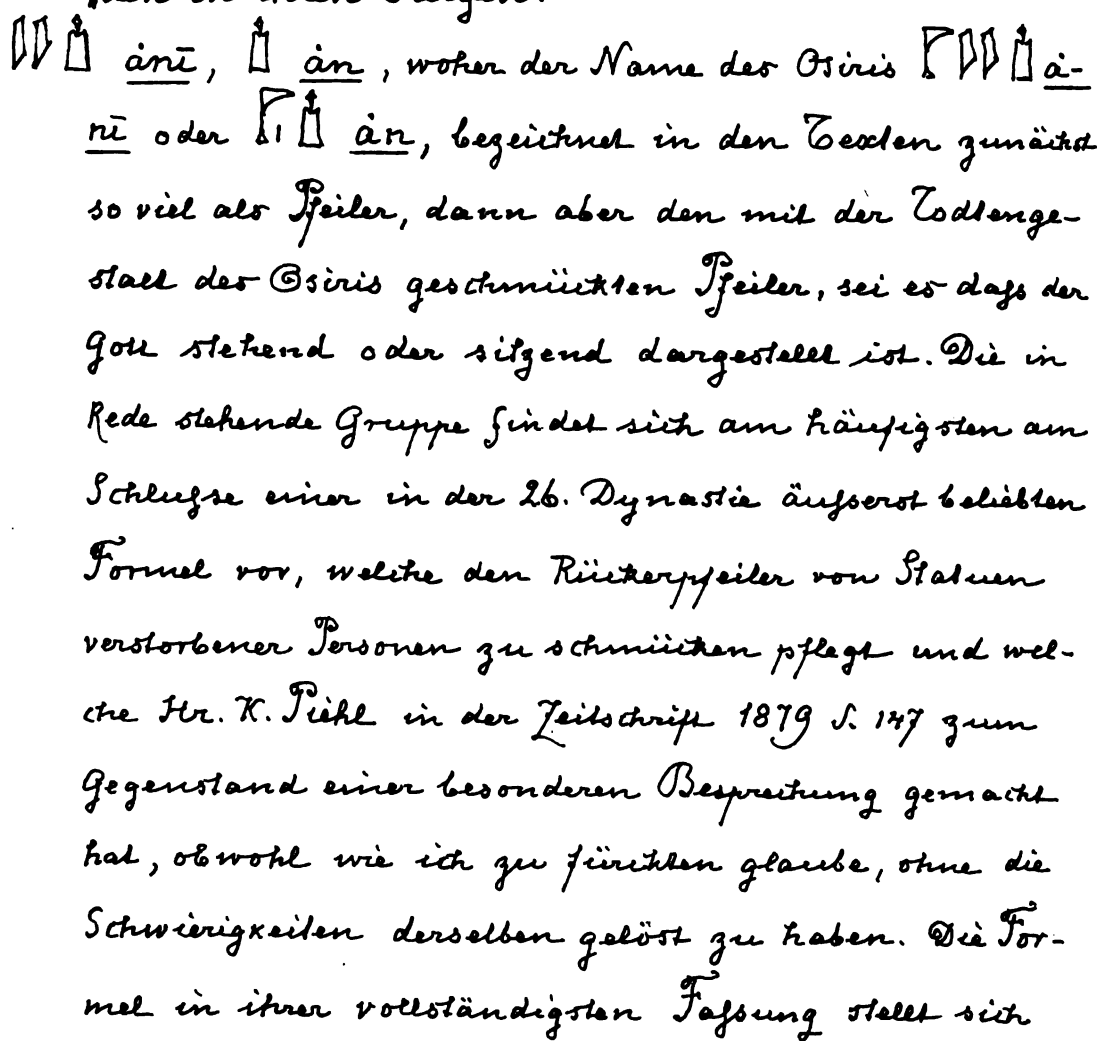 𓇋𓇋𓉺 ȧnī, 𓉺 ȧn, woher der Name des Osiris 𓊹𓇋𓇋𓉺 ȧ-
nī oder 𓊹𓏤𓉺 ȧn, bezeichnet in den Texten zunächst
so viel als Pfeiler, dann aber den mit der Todtenge-
stalt des Osiris geschmückten Pfeiler, sei es daſs der
Gott stehend oder sitzend dargestellt ist. Die in
Rede stehende Gruppe findet sich am häufigsten am
Schluſse einer in der 26. Dynastie äuſserst beliebten
Formel vor, welche den Rückerpfeiler von Statuen
verstorbener Personen zu schmücken pflegt und wel-
che Hr. K. Piehl in der Zeitschrift 1879 S. 147 zum
Gegenstand einer besonderen Besprechung gemacht
hat, obwohl wie ich zu fürchten glaube, ohne die
Schwierigkeiten derselben gelöst zu haben. Die For-
mel in ihrer vollständigsten Faſsung stellt sich